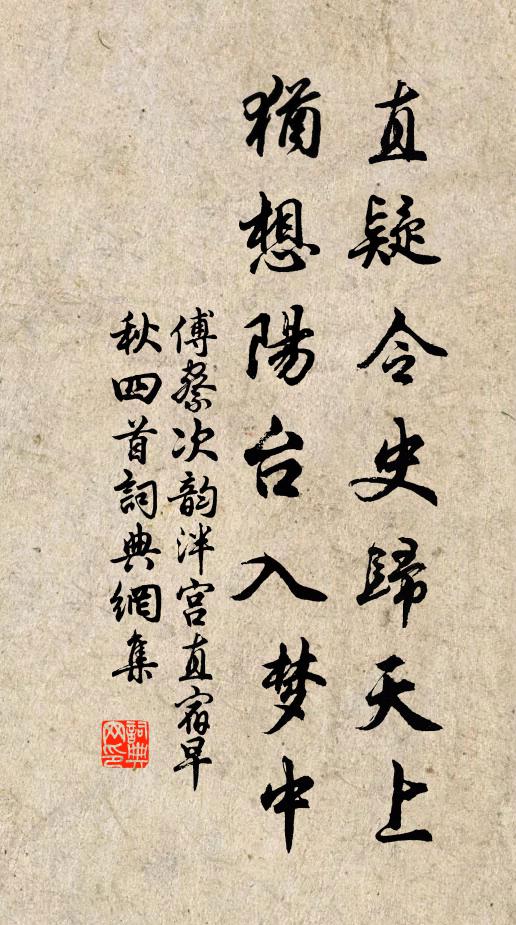 直疑令史歸天上
猶想陽台入梦中
傅察次韵泮宫直宿早
秋四首詞典網集
詞典
网印